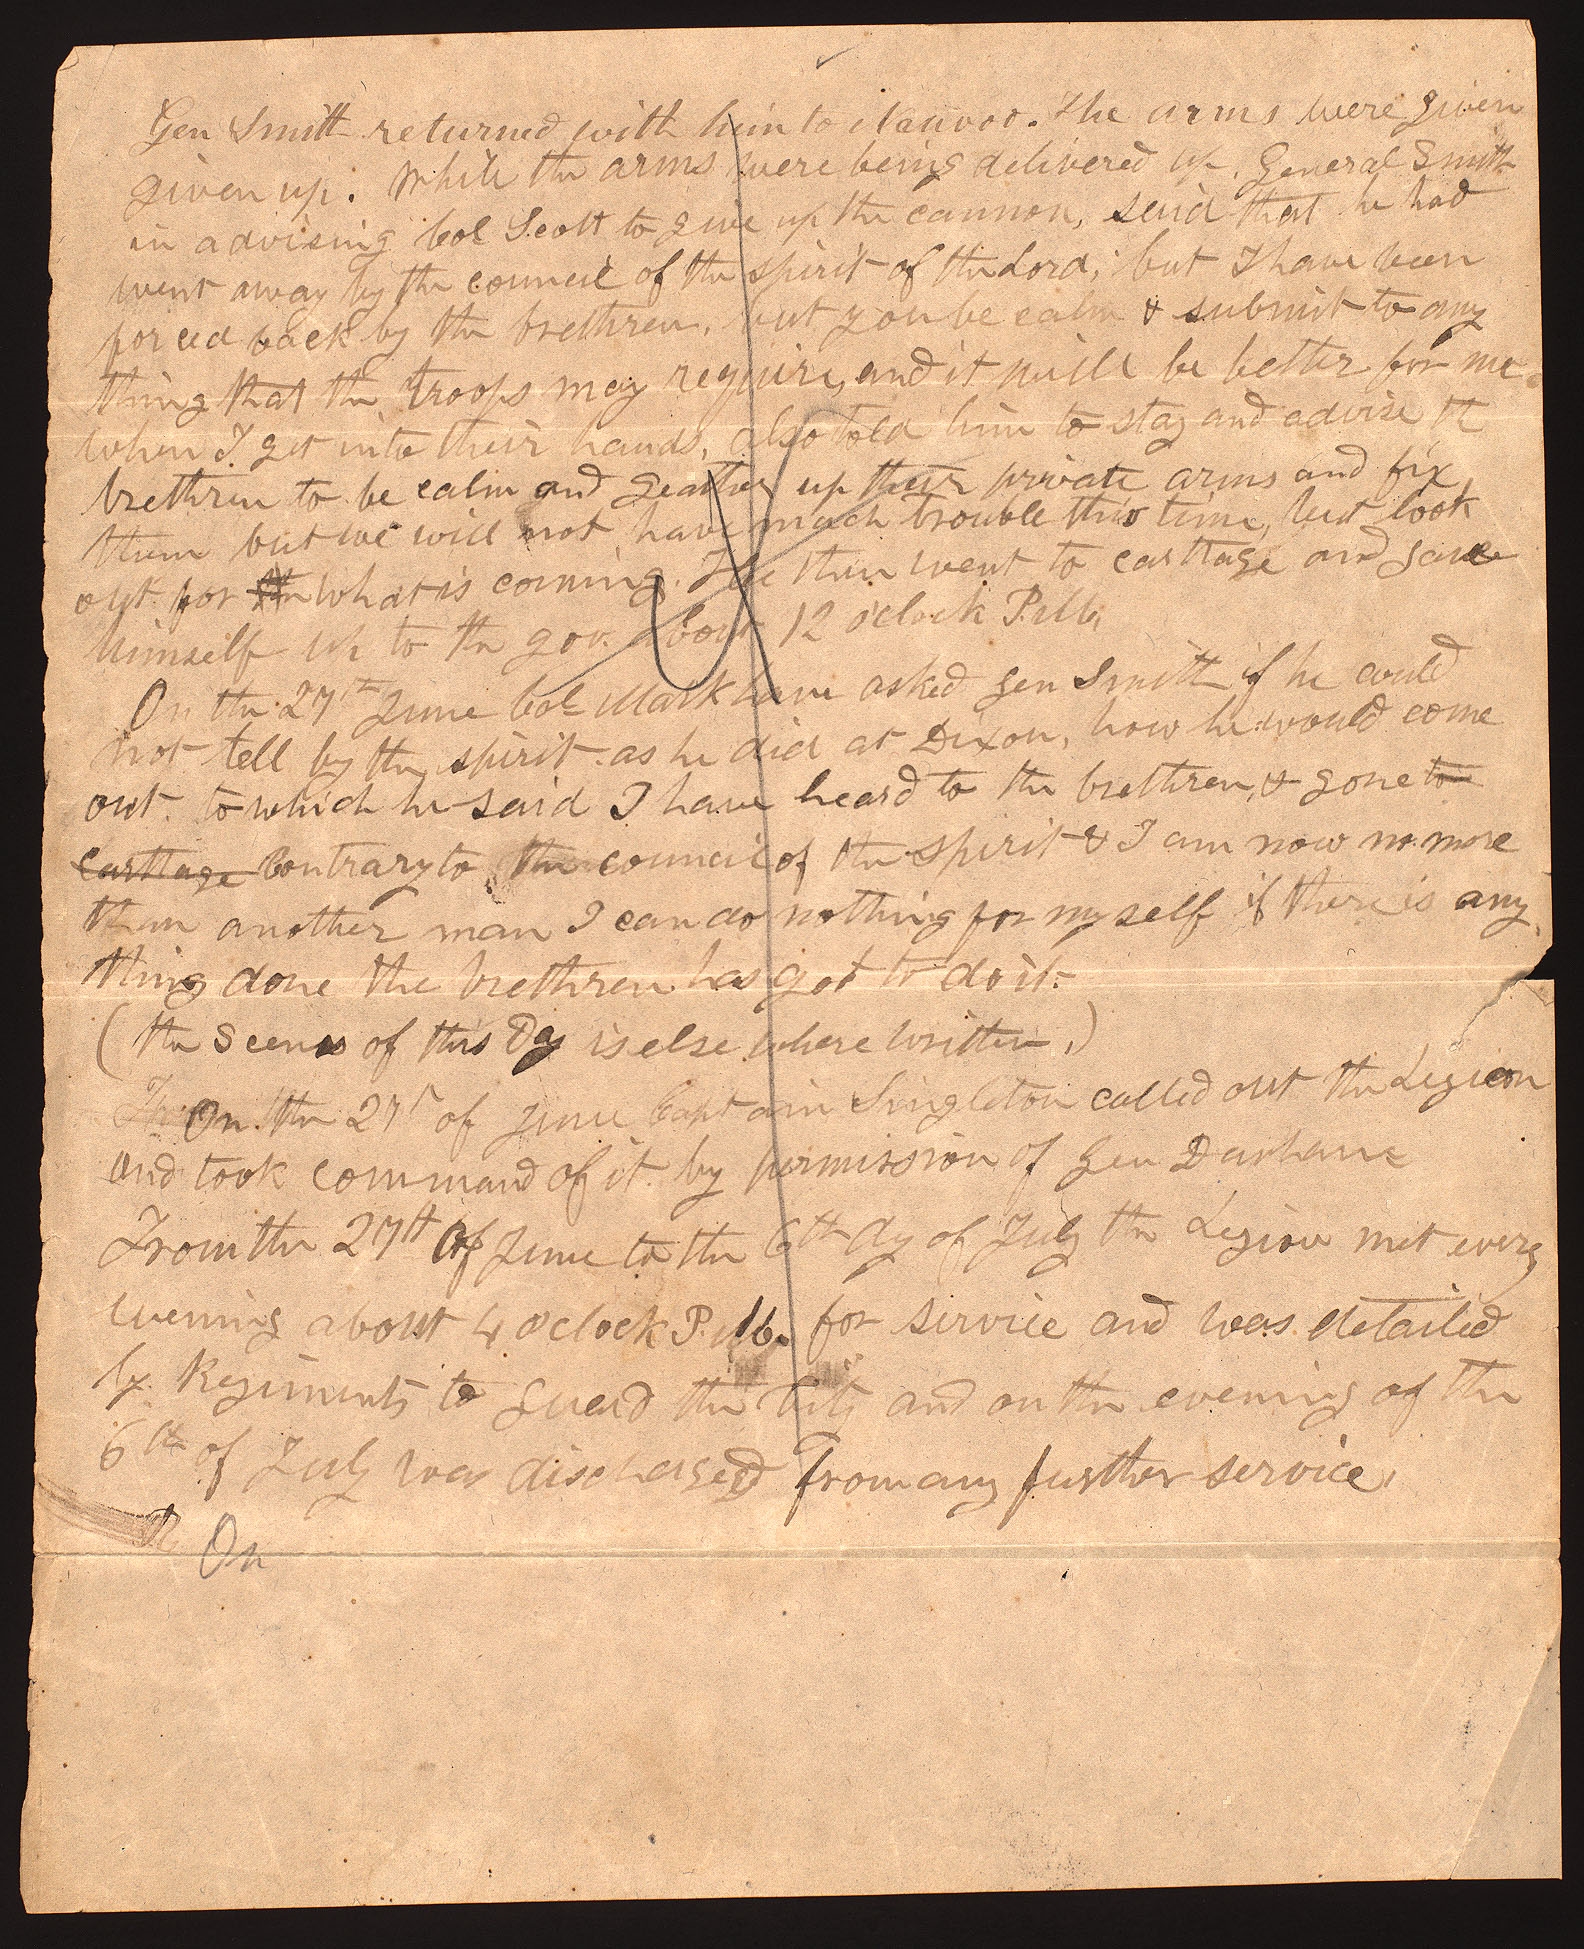 Gen Smith returned with him to Nauvoo. The arms were given
given up. While the arms were being delivered up, General Smith
in advising Col Scott to give up the cannon, said that he had
went away by the council of the spirit of the Lord; but I have been
forced back by the brethren, but you be calm & submit to any
thing that the troops may require, and it will be better for me
when I get into their hands, also told him to stay and advise th
brethren to be calm and geather up their private arms and fix
them but we will not have much trouble this time, but look
out for what is coming. He then went to Carthage and gave
himself up to the gov. about 12 o'clock P.M.
On the 27th June Col Markham asked Gen Smith if he could
not tell by the spirit as he did at Dixon, how he would come
out. to which he said I have heard to the brethren, & gone to
Carthage Contrary to the council of the spirit & I am now no more
than another man I can do nothing for myself if there is any
thing done the brethren has got to do it.
(the Scenes of this Day is else where written.)
Th On the 27th of June Captain Singleton called out the Legion
and took command of it by permission of Gen Dunham
From the 27th Of June to the 6th dy of July the Legion met every
evening about 4 o'clock P.M. for service and was detailed
by Regiments to guard the City and on the evening of the
6th of July was discharged From any further service.
On